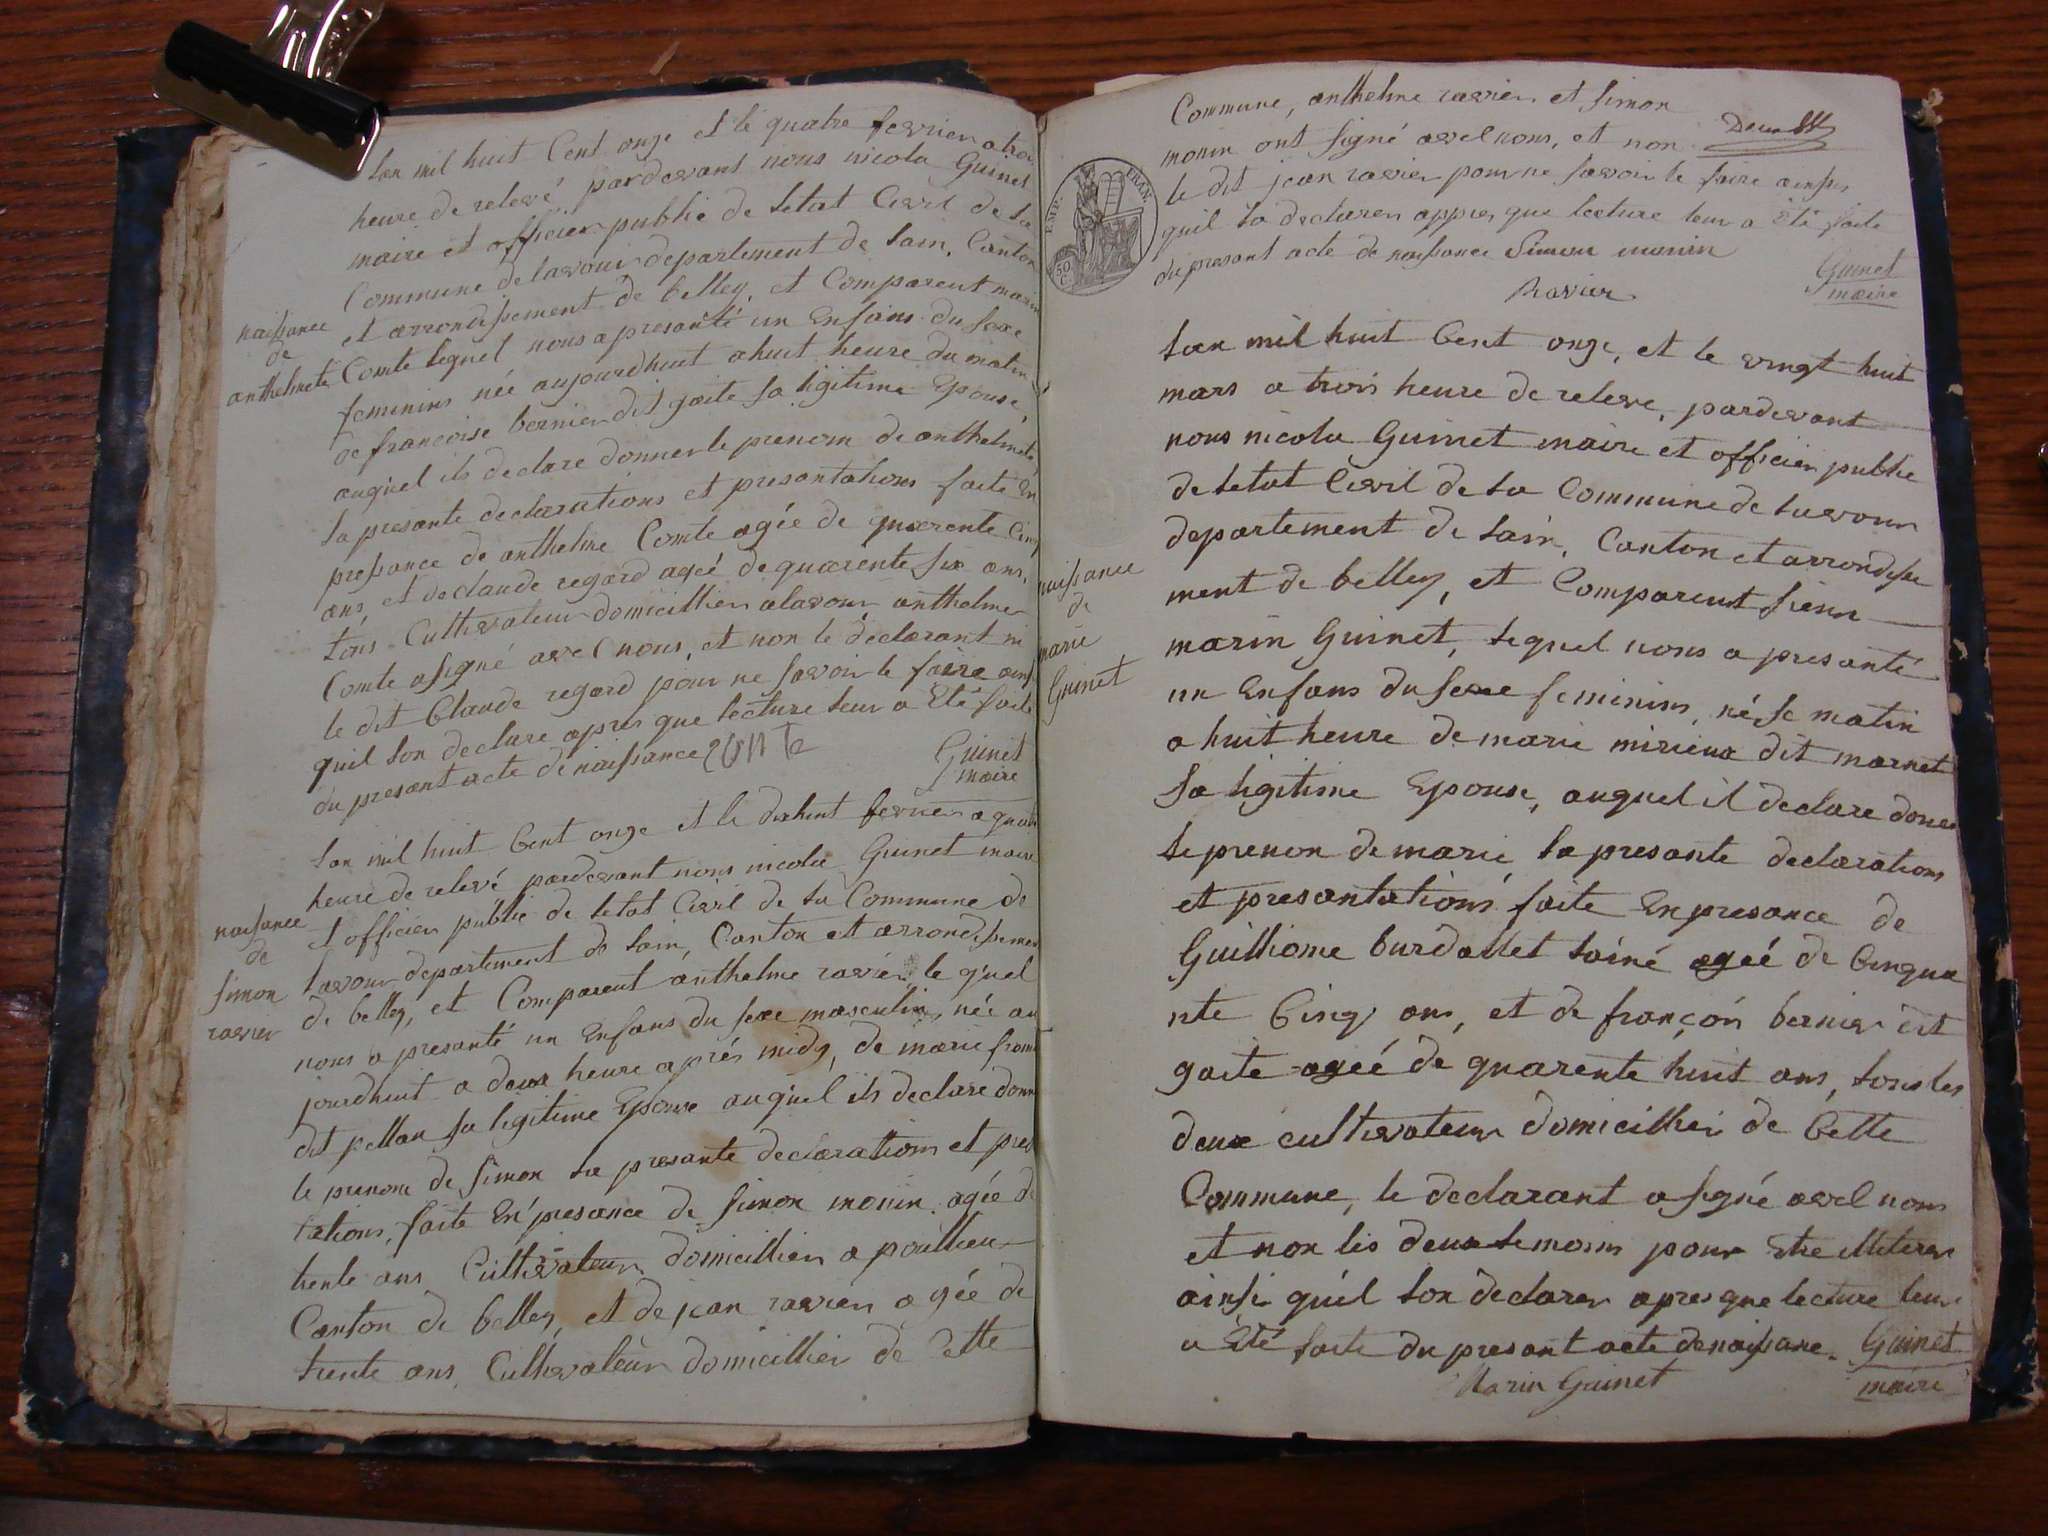 lan mil huit Cent onze et le quatre fevrier a troi
heure de relevé pardevant nous nicola Guinet
maire et officier public de letat Civil de la
Commune de lavour departement de lain, Canton
et arrondissement de belley, et Comparent marin
naissance
de
anthelmete
Comte lequel nous a presanté un Enfans du sexe
feminins née aujourdhuit a huit heure du matin
de francoise bernier dit gaite sa ligitime Epouse,
auquel ils declare donner le prenom de anthelmete,
la presante declarations et presantations faite En
pressance de anthelme Comte agée de quarente Cinq
ans, et de claude regard agée de quarente six ans,
tous Cultivateur domicillier a lavour, anthelme
Comte a signé avec nous, et non le declarant ni
le dit Claude regard pour ne savoir le faire ainsi
quil lon declare apres que lecture leur a Eté faite
du presant acte de naissance
Guinet
maire
lan mil huit Cent onze et le dixhuit fevrier a quatre
heure de relevé pardevant nous nicola Guinet maire
et officier public de letat Civil de la Commune de
naissance
de
simon
ravier
lavour departement de lain, Canton et arrondissement
de belley, et Comparent anthelme ravier le quel
nous a presanté un Enfans du sexe masculin, née au
jourdhuit a deux heure aprés midy, de marie
dit pellan sa legitime Epouse auquel ils declare donner
le prenom de simon la presante declarations et presan
tations, faite En presance de simon monin agée de
trente ans Cultivateur domicillier a poullieu
Canton de belley, et de jean ravier agée de
trente ans, Cultivateur domicillier de Cette
Commune, anthelme ravier et simon
monin ont signé avec nous, et non
le dit jean ravier pour ne savoir le faire ainsi
quil la declarer appres que lecture leur a Eté faite
du presant acte de naissance Simon monin
Ravier
Guinet
maire
EMP. FRAN.
50
C
lan mil huit Cent onze, et le vingt huit
mars a trois heure de releve, pardevant
nous nicola Guinet maire et officier public
de letat Civil de la Commune de lavour
departement de lain, Canton et arrondisse
ment de belley, et Comparent sieur
naissance
de
marie
Guinet
marin Guinet, lequel nous a presanté
un Enfans du sexe feminins, né se matin
a huit heure de marie mirieux dit marnet
sa ligitime Epouse, auquel il declare doner
le prenon de marie, la presante declarations
et presantations faite En presance de
Guilliome burdallet lainé agée de Cinqua
nte Cinq ans, et de françoi bernier dit
gaite agée de quarente huit ans, tous les
deux cultivateur domicillier de Cette
Commune, le declarant a signé avec nous
et non les deux temoins pour Etre illiterer
ainsi quil lon declarer apres que lecture leur
a Eté faite du presant acte de naissane. Guinet
Marin Guinet
maire